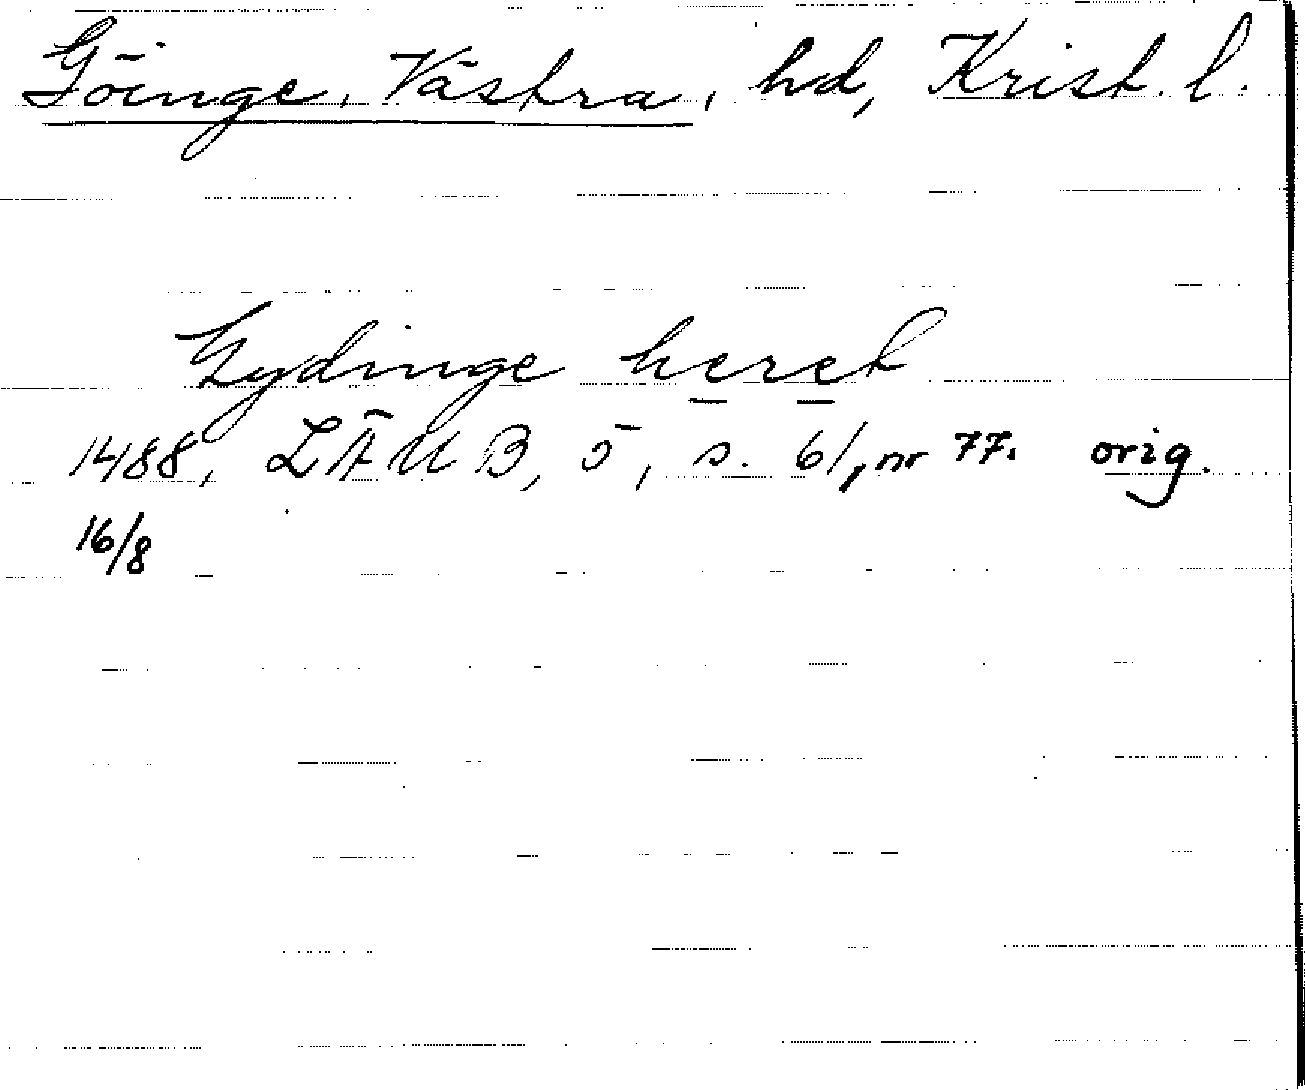 Göinge, Västra, hd, Krist. l.
Gydinge heret
1488, LÄUB, 5, s. 61, nr 77. orig.
16/8